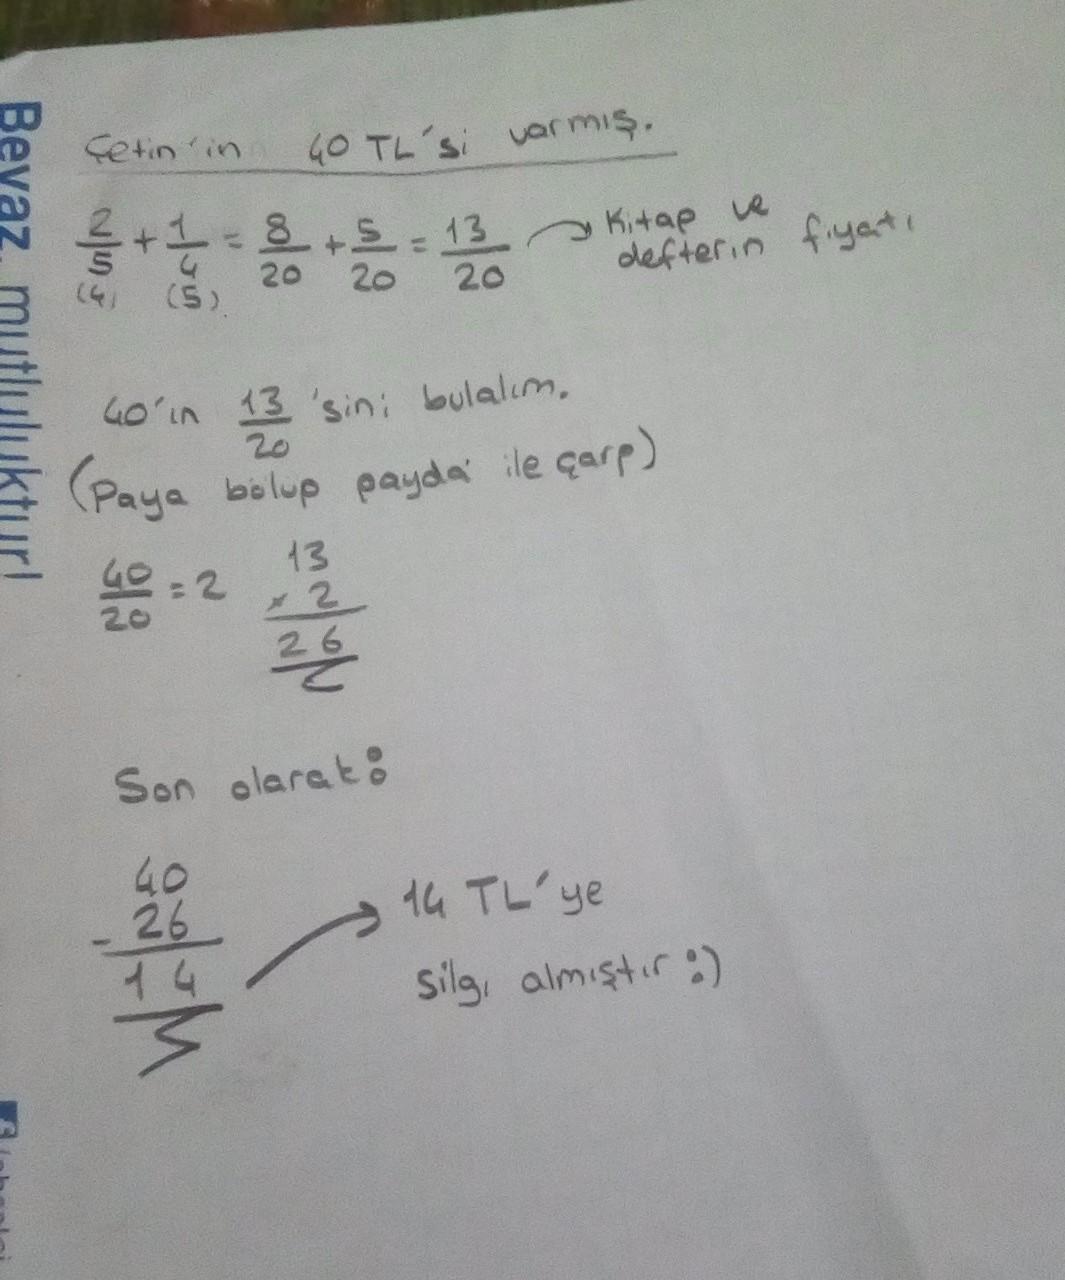 Beyaz, mutluluktur!
Çetin'in 40 TL'si varmış.
2/5 + 1/4 = 8/20 + 5/20 = 13/20 → Kitap ve defterin fiyatı
(4) (5)
40'ın 13/20 'sini bulalım.
(Paya bölüp payda ile çarp)
40/20 = 2
13
x 2
26
Son olarak:
40
- 26
14 → 14 TL'ye
silgi almıştır :)